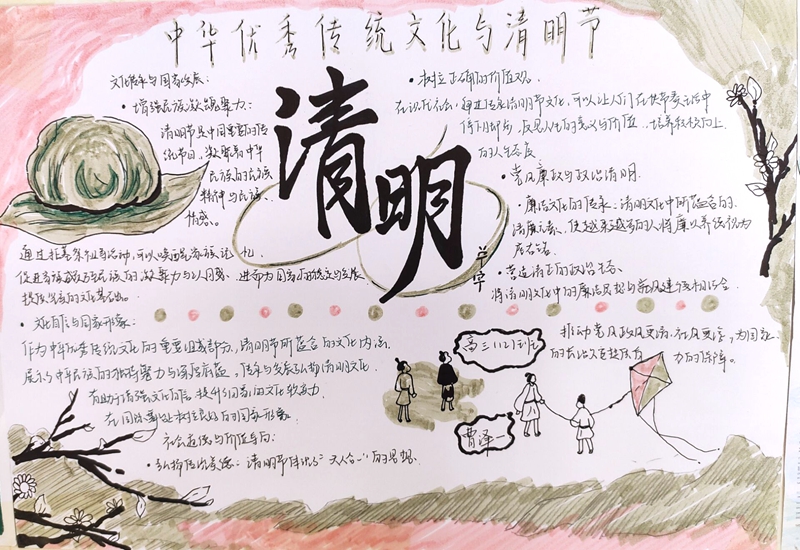 中华优秀传统文化与清明节
清明
文化传承与国家发展：
• 增强民族凝聚力：
清明节是中国重要的传
统节日，凝聚着中华
民族的民族
精神与民族
情感。
通过扫墓祭祖等活动，可以唤起家族记忆
• 文化自信与国家形象：
作为中华优秀传统文化的重要组成部分，清明节所蕴含的文化内涵
展示了中华民族的独特魅力与深厚底蕴。传承与发展弘扬清明文化
有助于增强文化自信，提升国家的文化软实力
在国际舞台树立良好的国家形象
社会道德与价值导向：
• 弘扬传统美德：清明节体现了“天人合一”的思想
• 树立正确的价值观。
在现代社会，通过传承清明节文化，可以让人们在快节奏生活中
停下脚步，反思人生的意义与价值，培养积极向上
的人生态度
• 党风廉政与政治清明
• 廉洁文化的传承：清明文化中所蕴含的
清廉元素，使越来越多的人将廉以养德视为
座右铭
• 营造清正的政治生态
将清明文化中的廉洁思想与党风建设相结合
推动党风政风更清、社风更淳，为国家
的长治久安提供有力的保障。
高三1121班
曹泽一